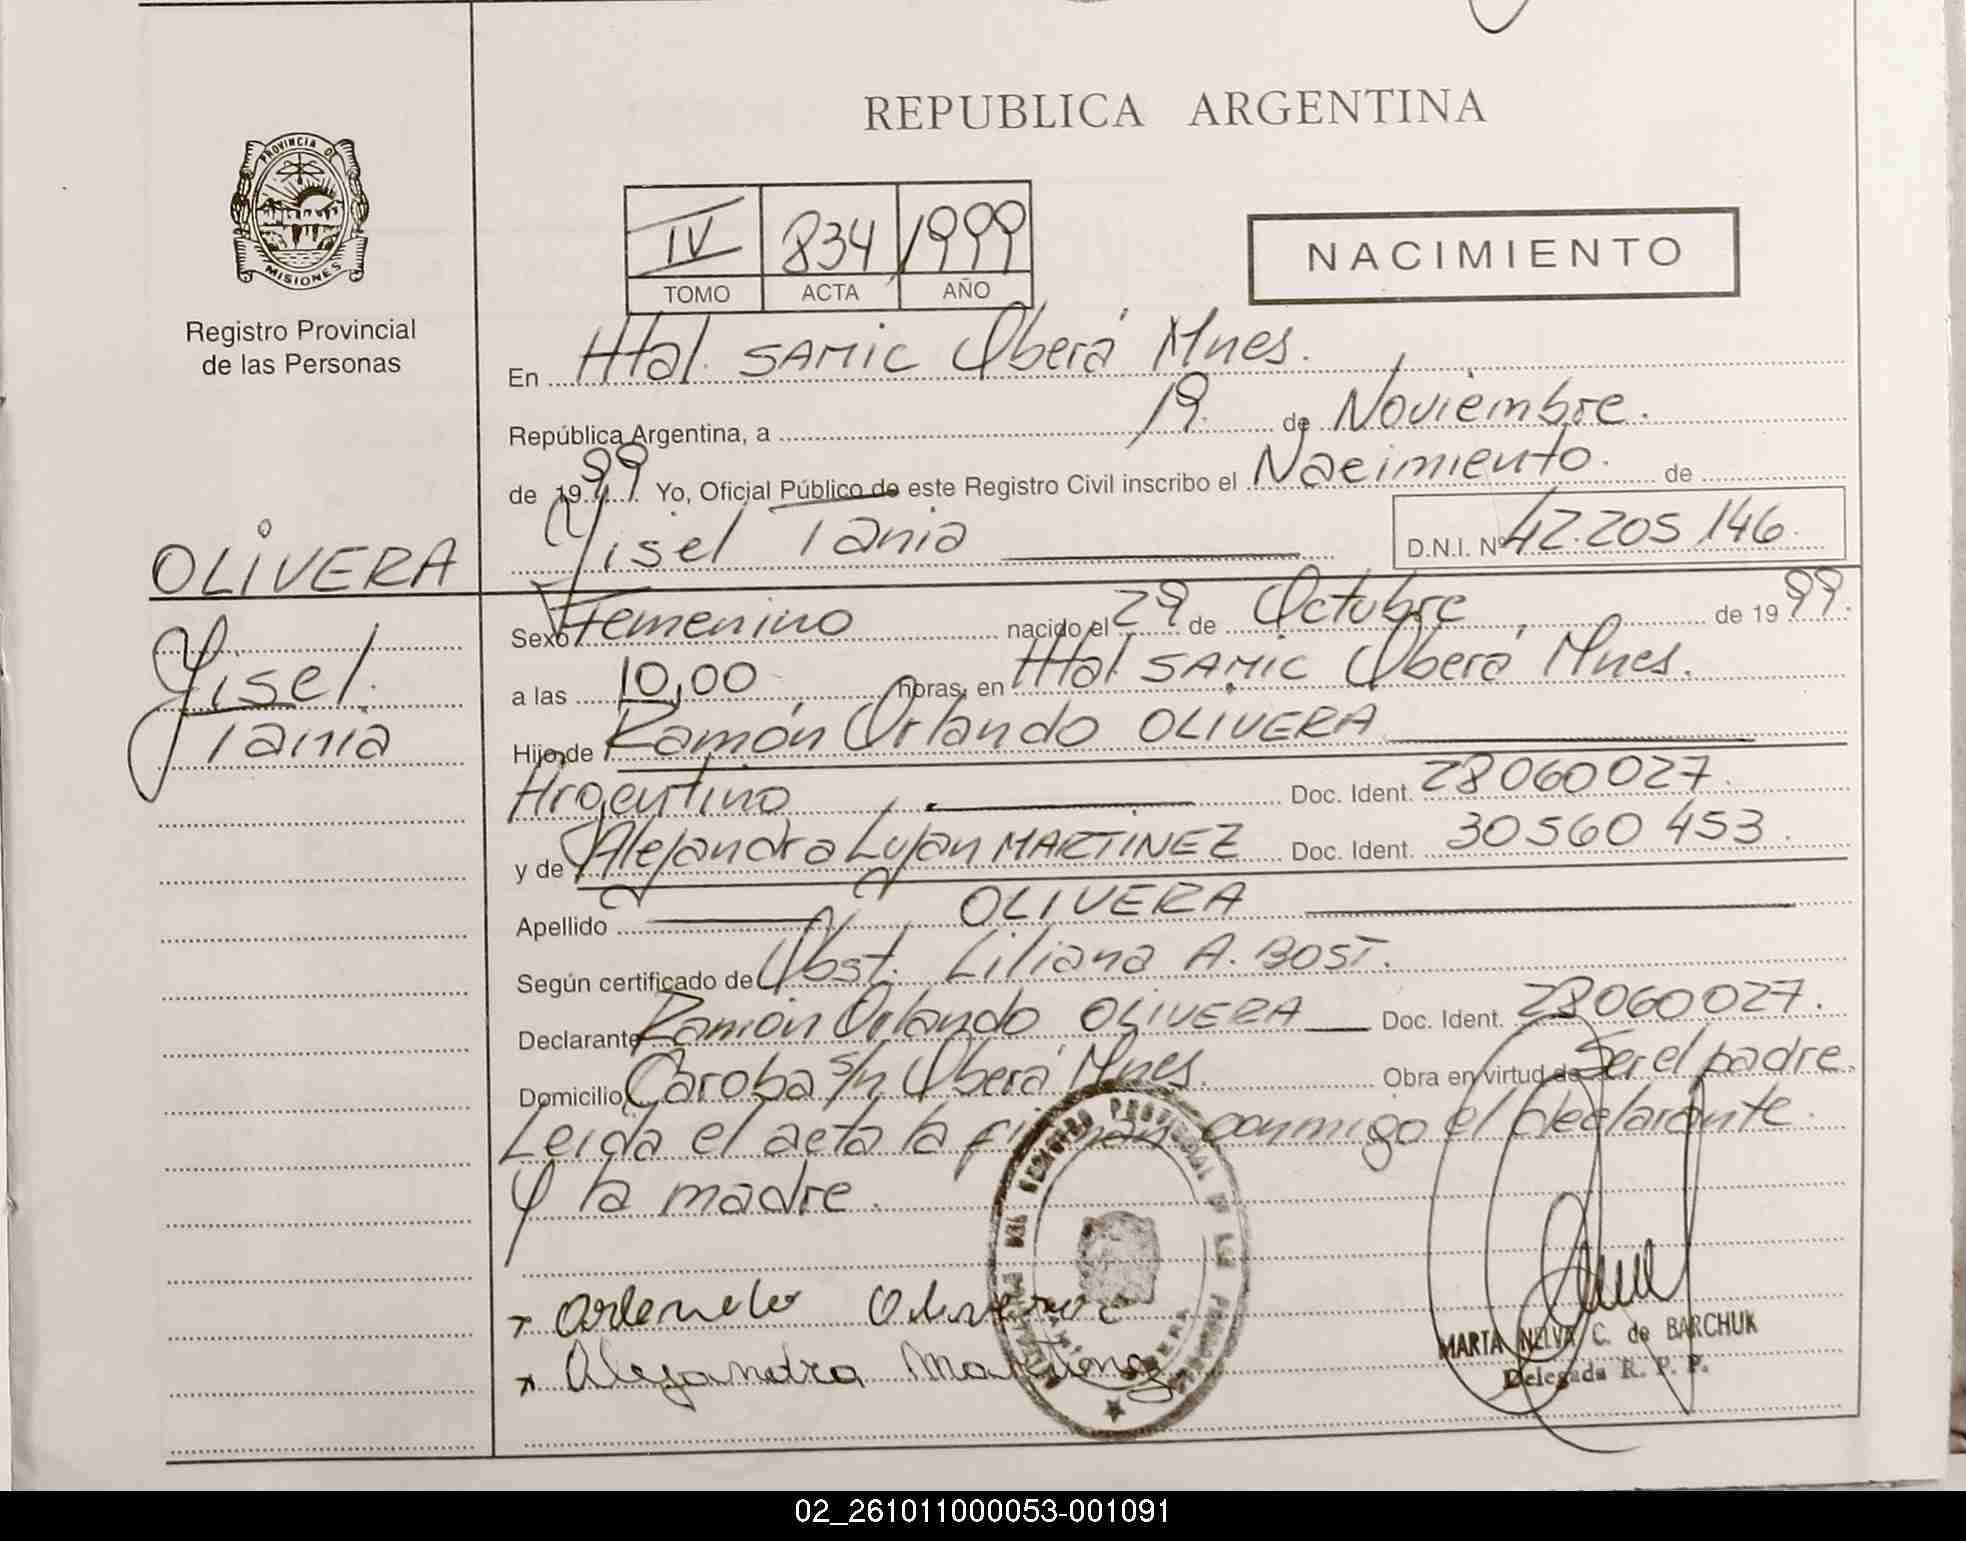 REPUBLICA ARGENTINA
PROVINCIA DE
MISIONES
Registro Provincial
de las Personas
IV 834 1999
TOMO ACTA AÑO
NACIMIENTO
En Htal. SAMIC Oberá Mnes.
República Argentina, a 19 de Noviembre.
de 1999. Yo, Oficial Público de este Registro Civil inscribo el Nacimiento. de
Yisel Tania D.N.I. Nº 42.205.146.
OLIVERA
Yisel.
Tania
Sexo Femenino nacido el 29 de Octubre de 1999.
a las 10,00 horas, en Htal SAMIC Oberá Mnes.
Hijo de Ramón Orlando OLIVERA
Argentino Doc. Ident. 28060027.
y de Alejandra Lujan MARTINEZ Doc. Ident. 30560453.
Apellido OLIVERA
Según certificado de Obst. Liliana A. BOST.
Declarante Ramón Orlando OLIVERA Doc. Ident. 28060027.
Domicilio Caroba s/n Oberá Mnes. Obra en virtud de Ser el padre.
Leida el acta la firman conmigo el declarante.
Y la madre.
Olivera
Alejandra Martinez
MARTA NELVA C. de BARCHUK
Delegada R. P. P.
02_261011000053-001091